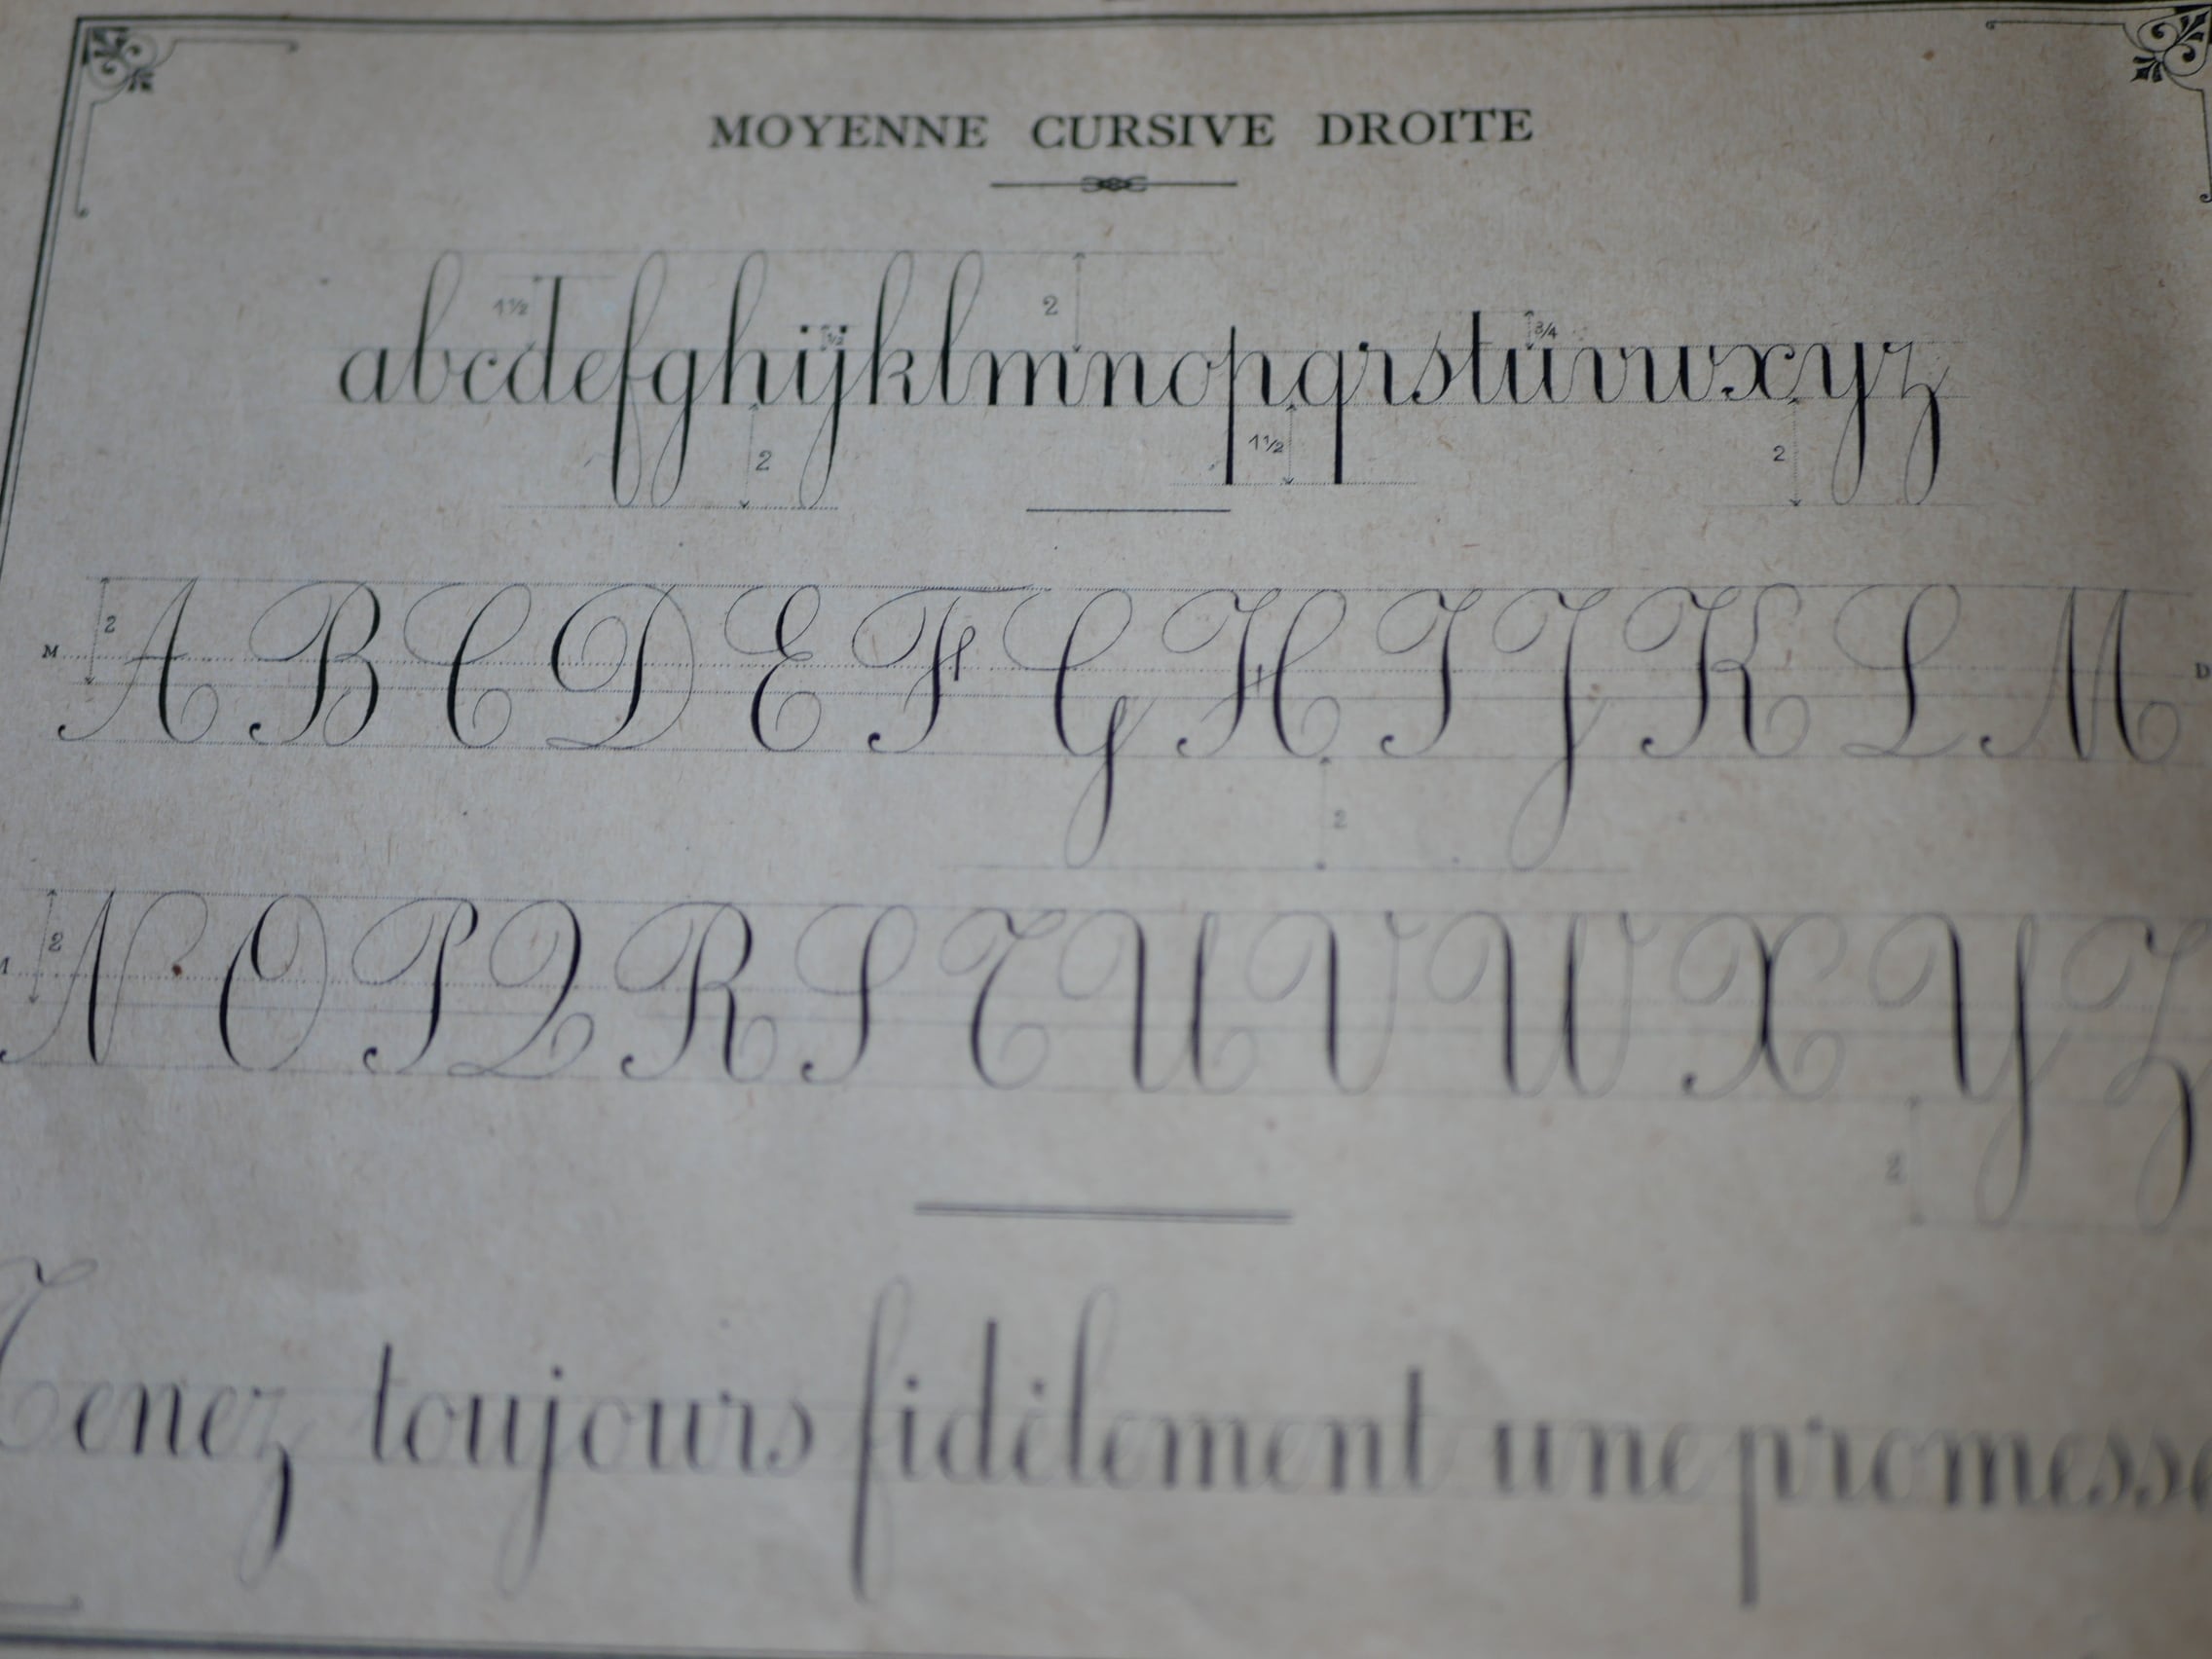 MOYENNE CURSIVE DROITE
1½ 2
½ ¾
abcdefghijklmnopqrstuvwxyz
2 1½ 2
2
M A B C D E F G H I J K L M D
2
2
N O P Q R S T U V W X Y Z
2
Tenez toujours fidèlement une promesse